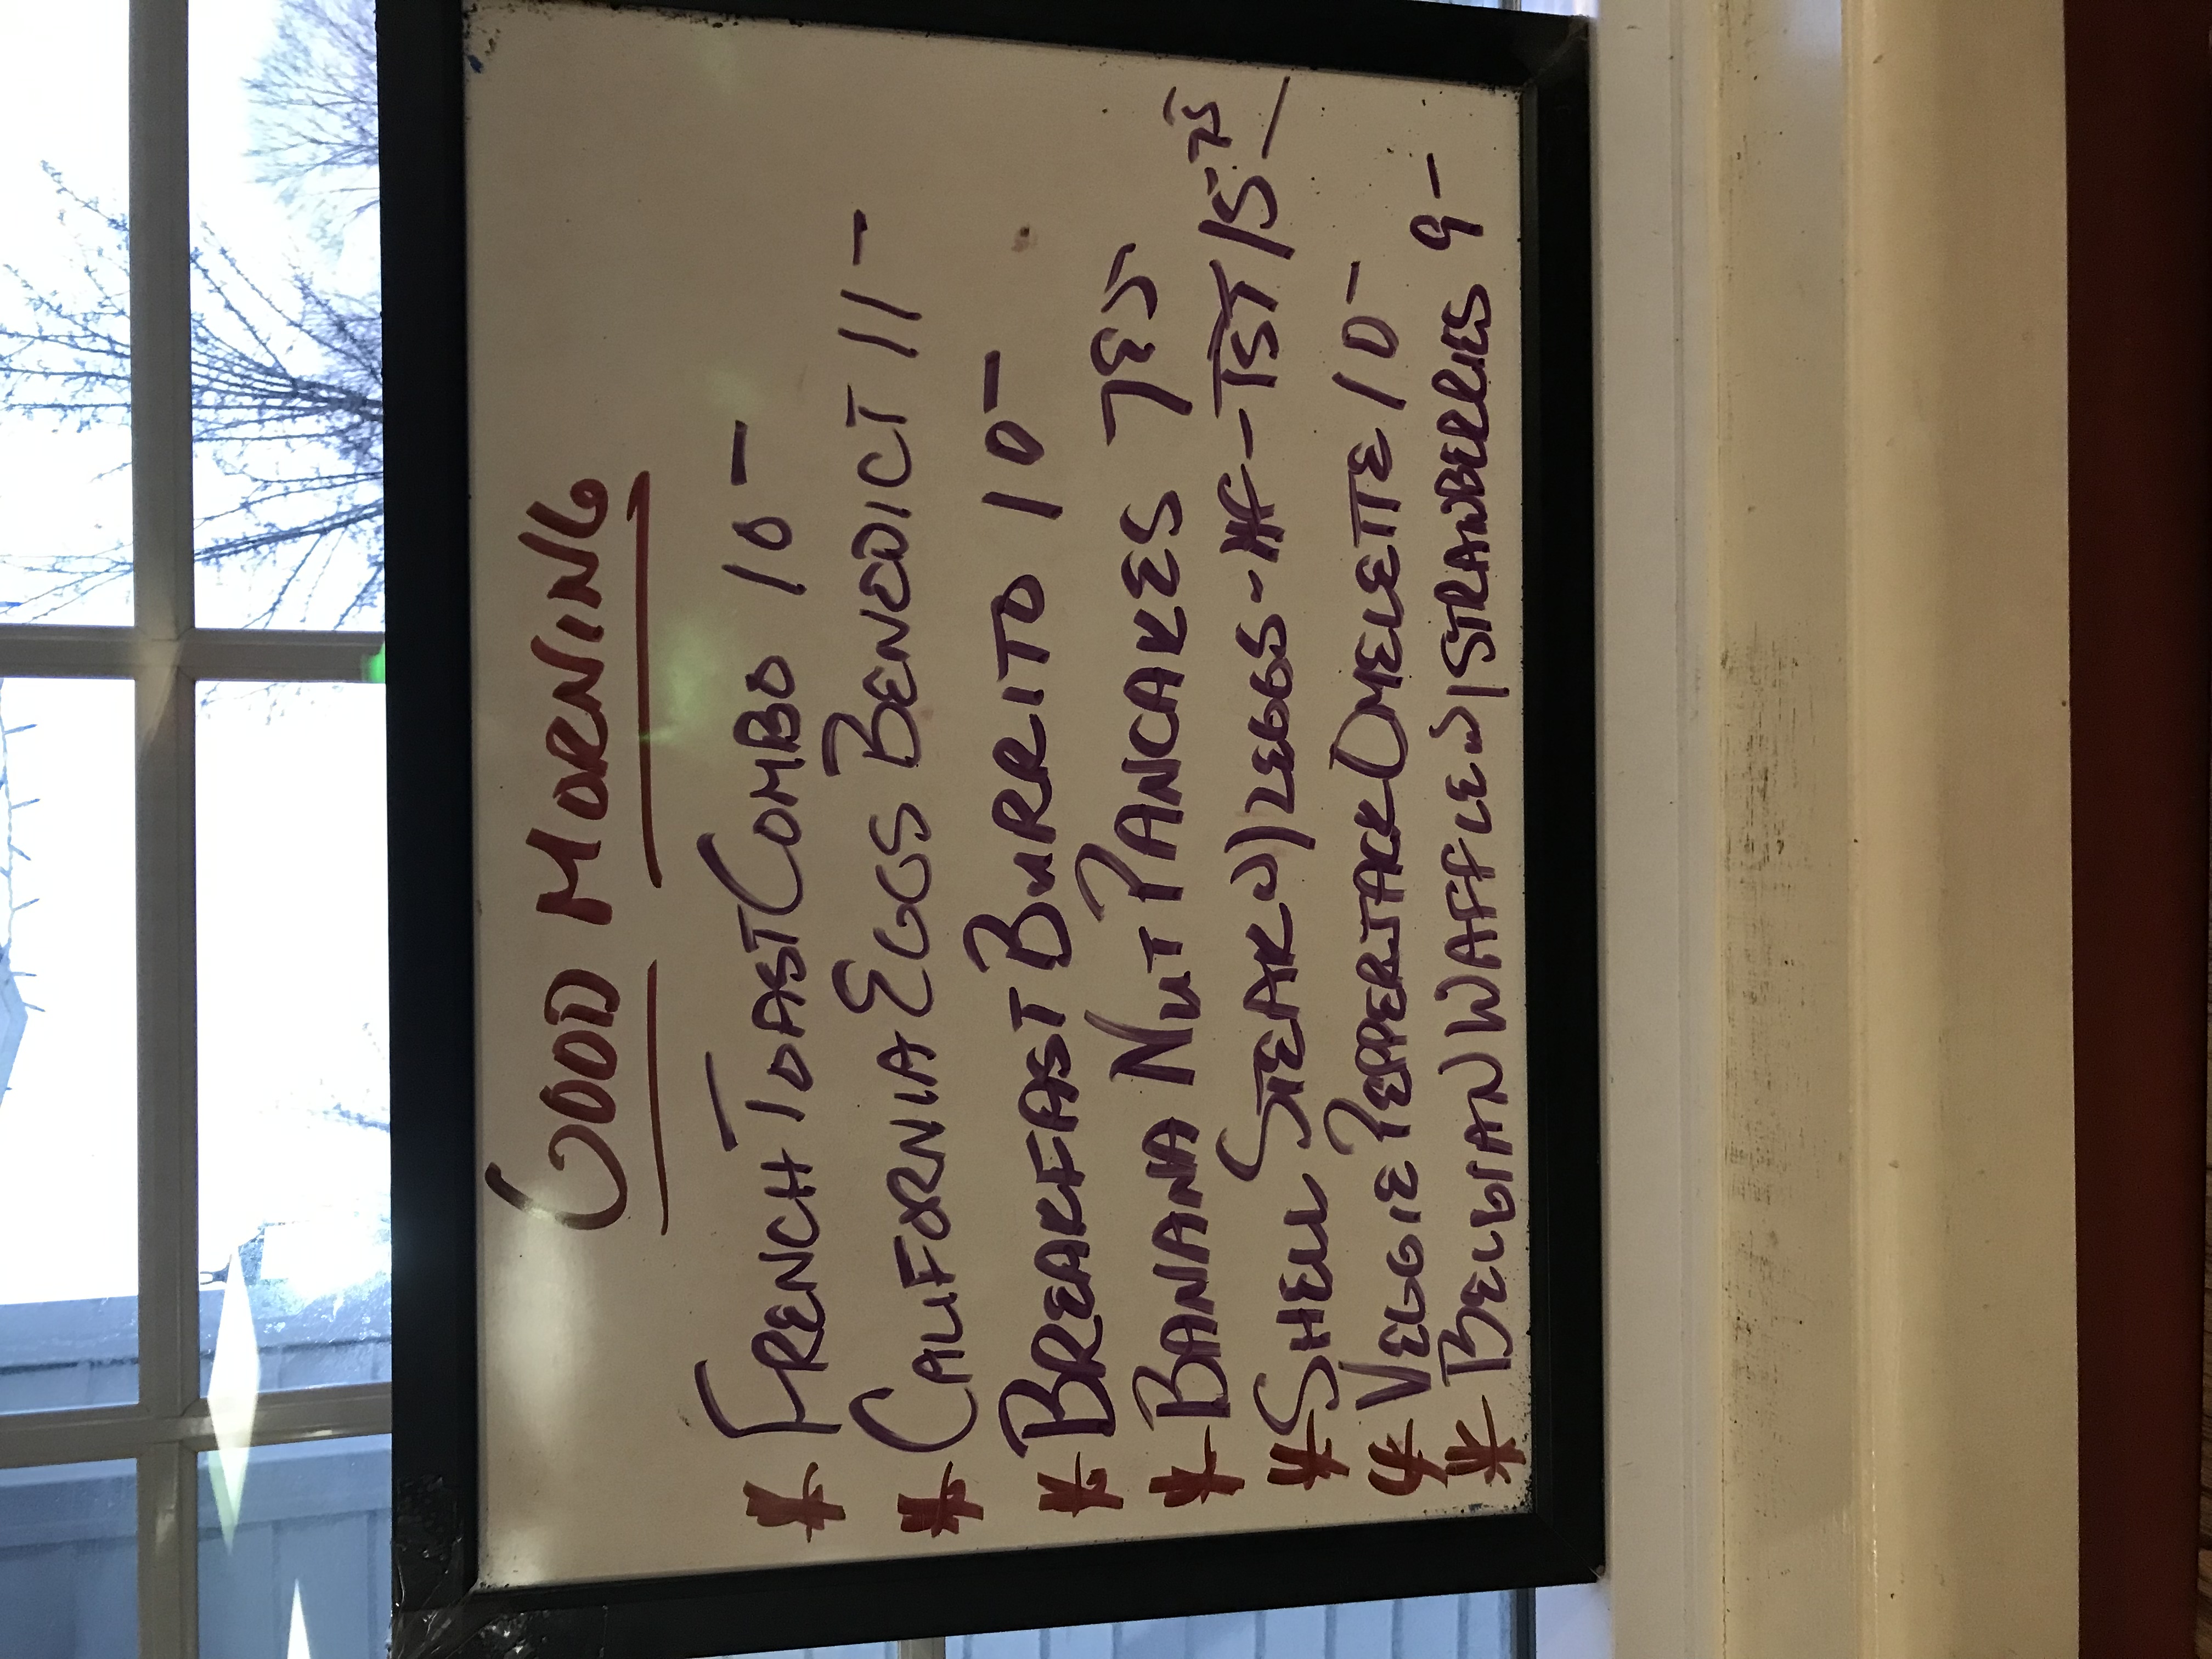 GOOD MORNING
* FRENCH TOAST COMBO 10-
* CALIFORNIA EGGS BENEDICT 11-
* BREAKFAST BURRITO 10-
* BANANA NUT PANCAKES
* SHELL STEAK W/2EGGS-HF-TST 15.75
* VEGGIE PEPPERJACK OMELETTE 10-
* BELGIAN WAFFLE W/STRAWBERRIES 9-